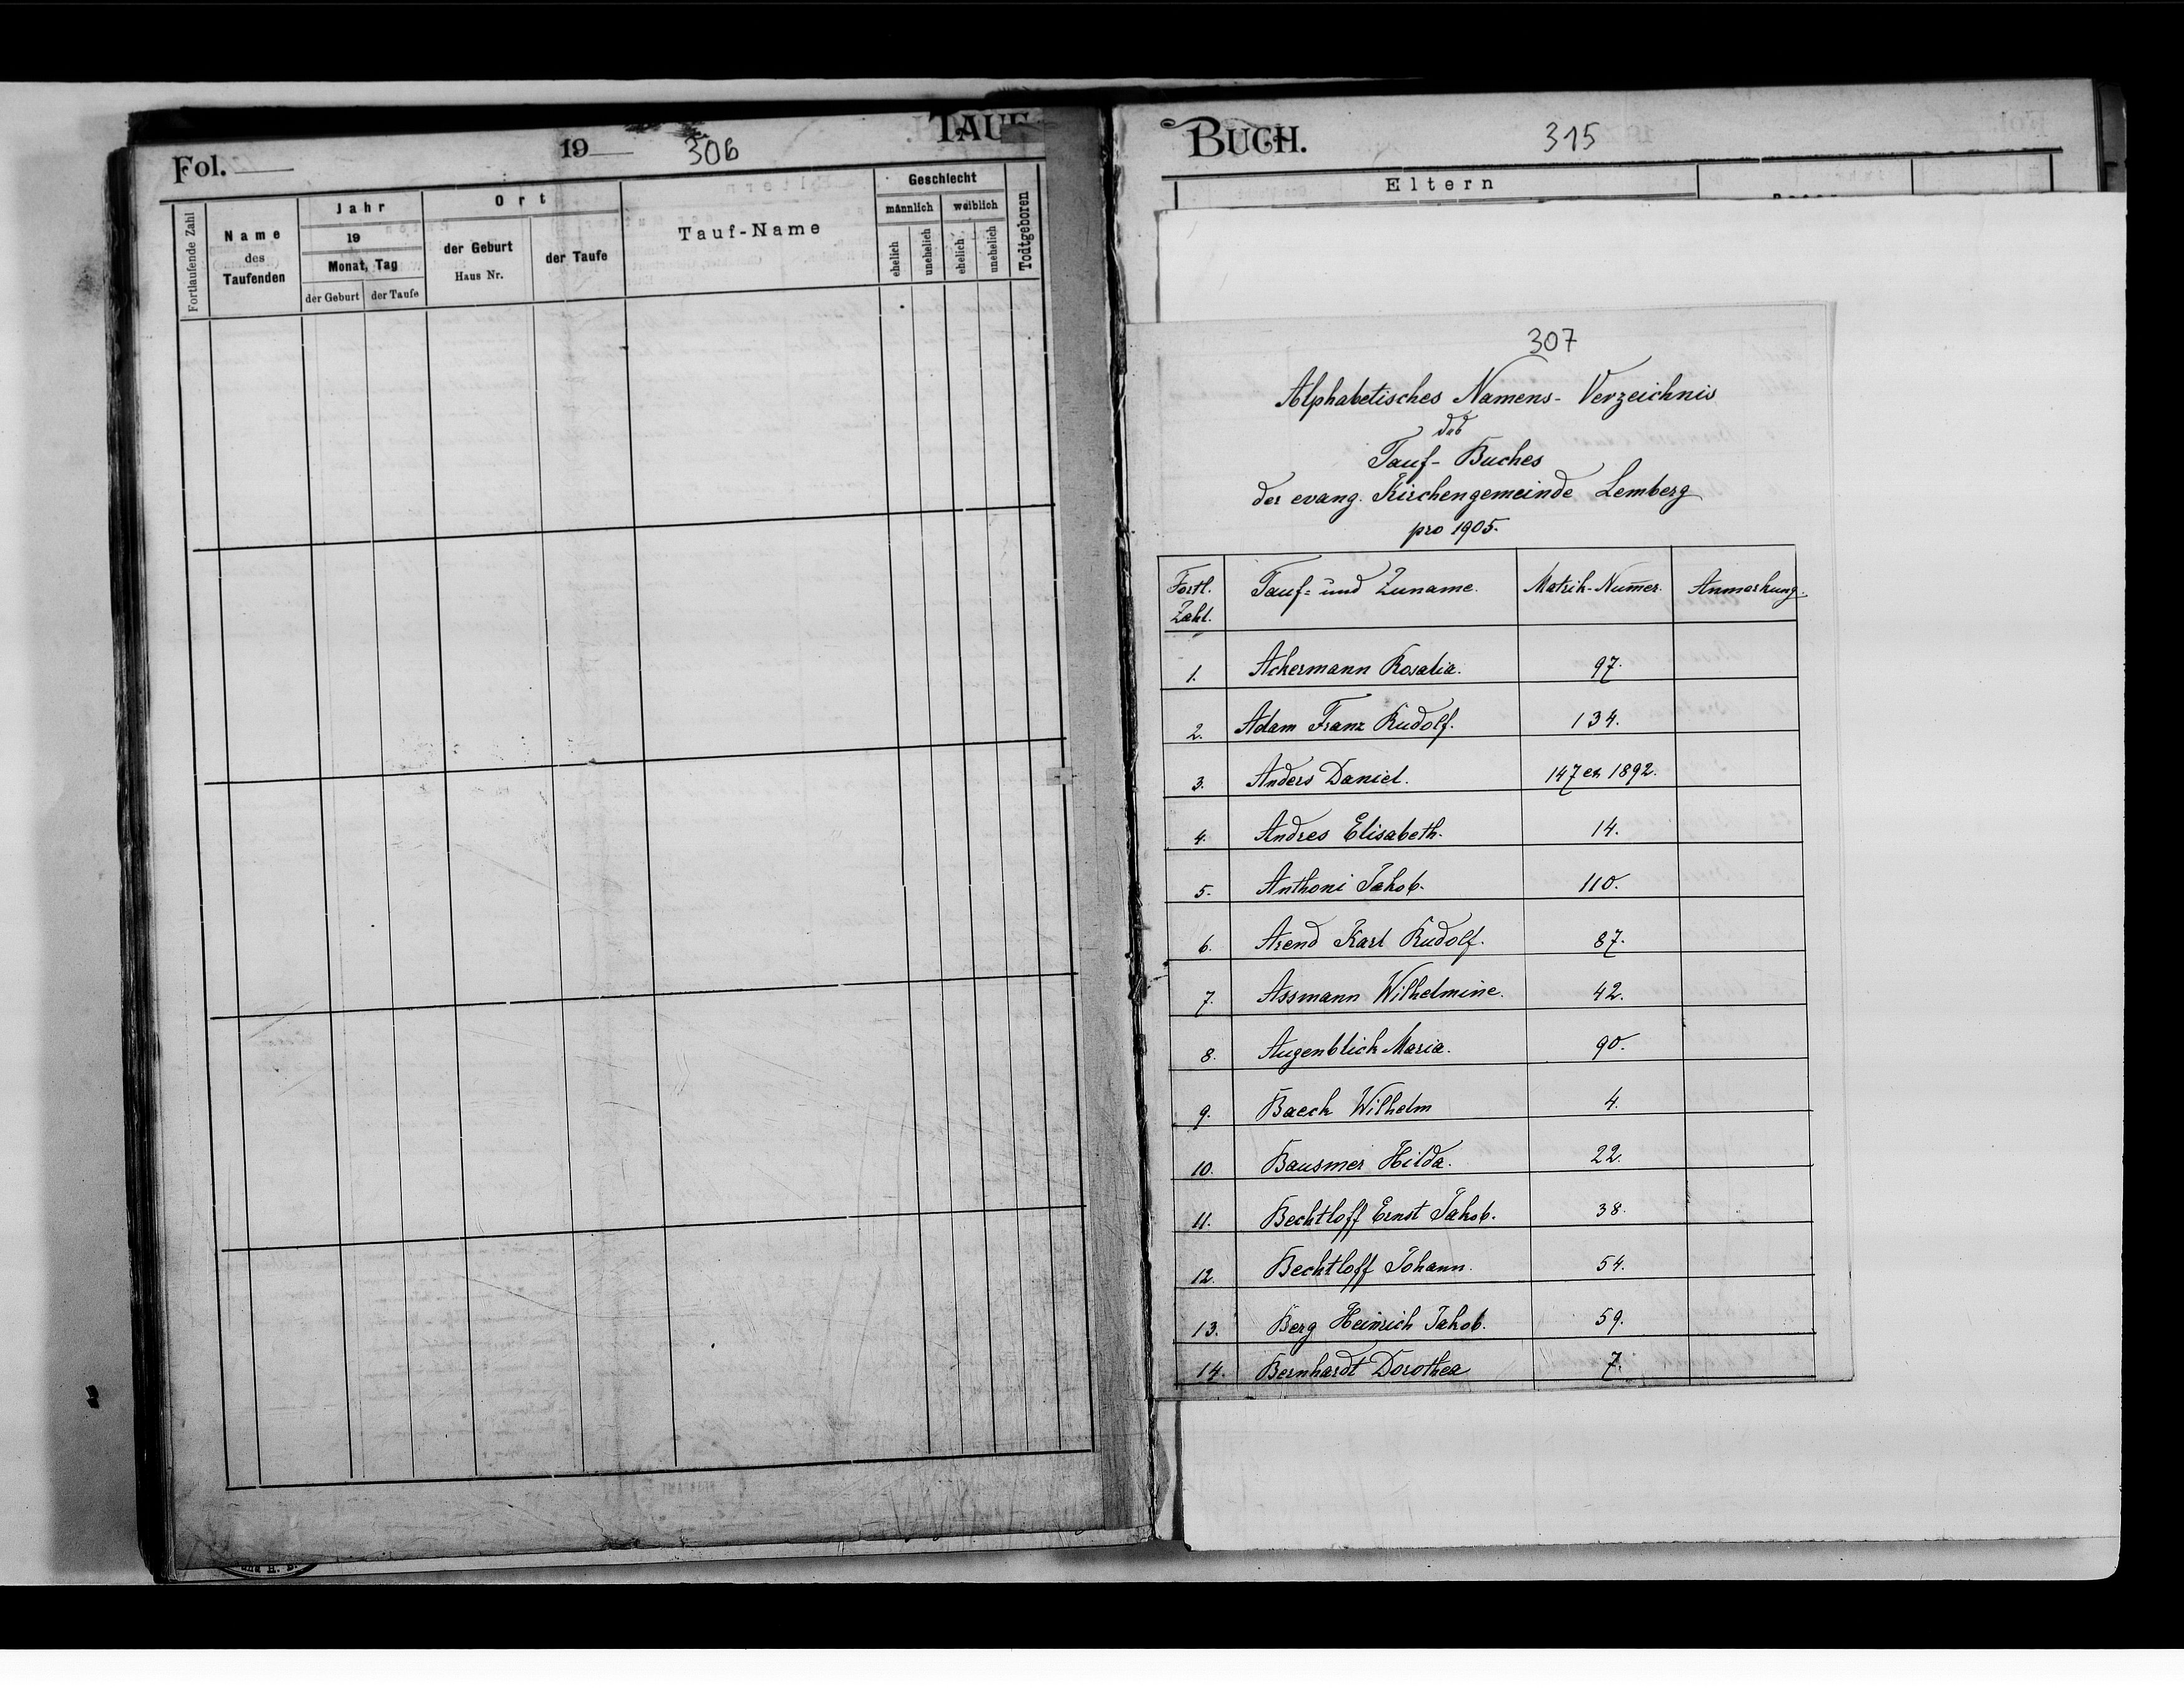 Fol.
19
306
TAUF
Fortlaufende Zahl
Name
des
Taufenden
Jahr
19
Monat, Tag
der Geburt
der Taufe
Ort
der Geburt
Haus Nr.
der Taufe
Tauf-Name
Geschlecht
männlich
weiblich
ehelich
unehelich
ehelich
unehelich
Todtgeboren
BUCH.
315
Eltern
307
Alphabetisches Namens-Verzeichnis
des
Tauf-Buches
der evang. Kirchengemeinde Lemberg
pro 1905.
Fortl. Zahl. Tauf= und Zuname. Matrik-Num̄er. Anmerkung.
1. Ackermann Rosalia. 97.
2. Adam Franz Rudolf. 134.
3. Anders Daniel. 147 ex 1892.
4. Andres Elisabeth. 14.
5. Anthoni Jakob. 110.
6. Arend Karl Rudolf. 87.
7. Assmann Wilhelmine. 42.
8. Augenblick Maria. 90.
9. Baeck Wilhelm 4.
10. Bausmer Hilda. 22.
11. Bechtloff Ernst Jakob. 38.
12. Bechtloff Johann. 54.
13. Berg Heinrich Jakob. 59.
14. Bernhardt Dorothea 7.